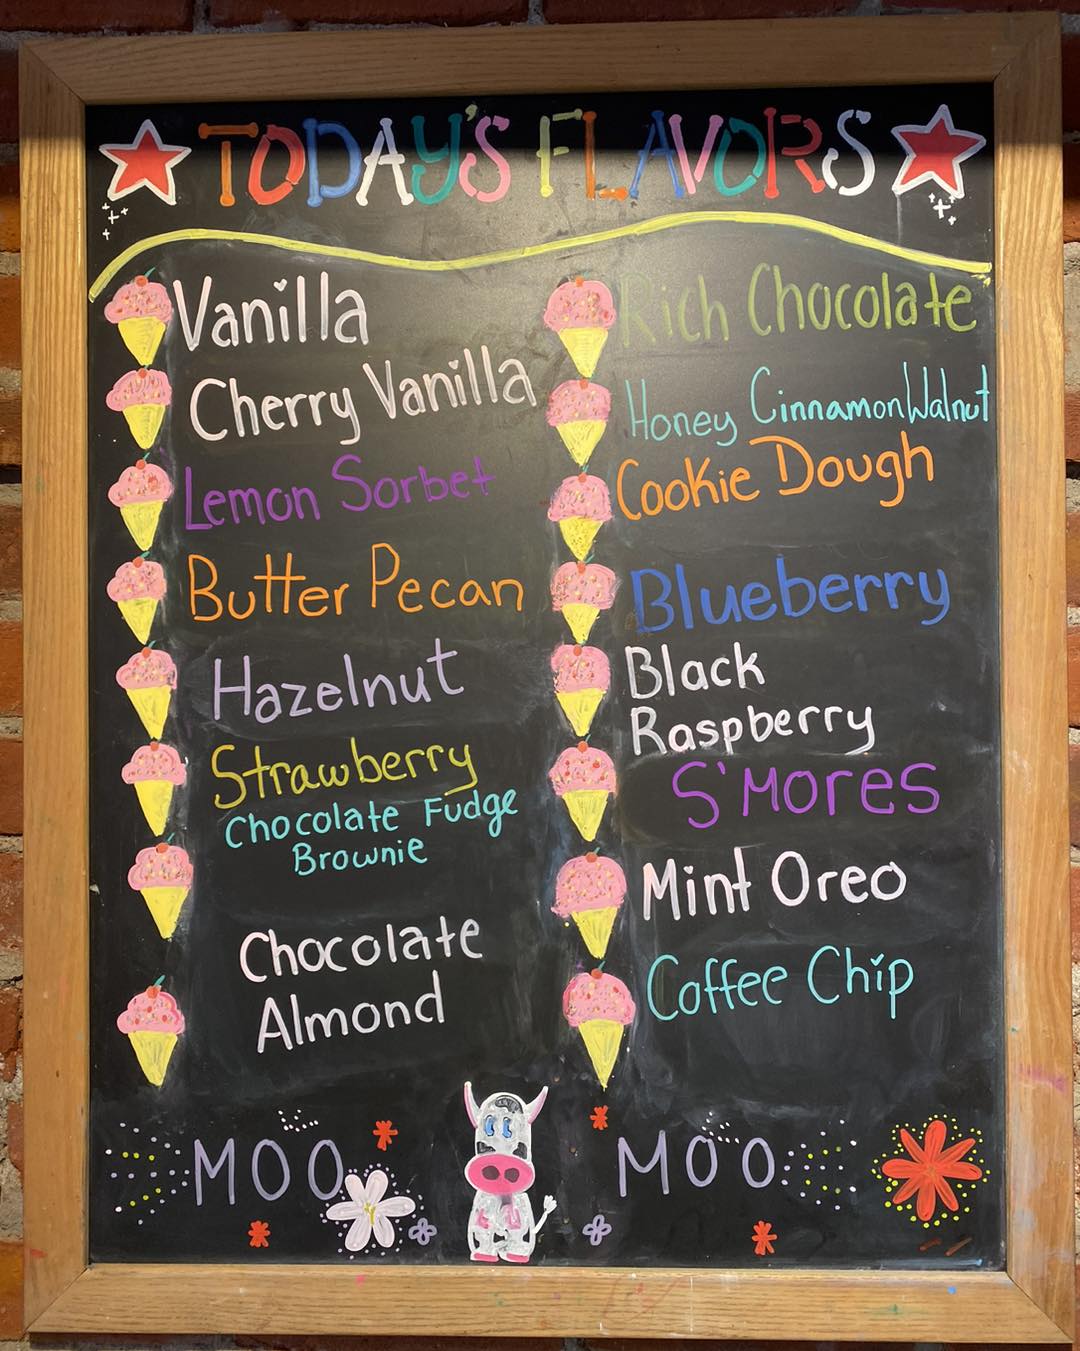 TODAY'S FLAVORS
Vanilla
Cherry Vanilla
Lemon Sorbet
Butter Pecan
Hazelnut
Strawberry
Chocolate Fudge
Brownie
Chocolate
Almond
Rich Chocolate
Honey Cinnamon Walnut
Cookie Dough
Blueberry
Black
Raspberry
S'MORES
Mint Oreo
Coffee Chip
MOO
MOO